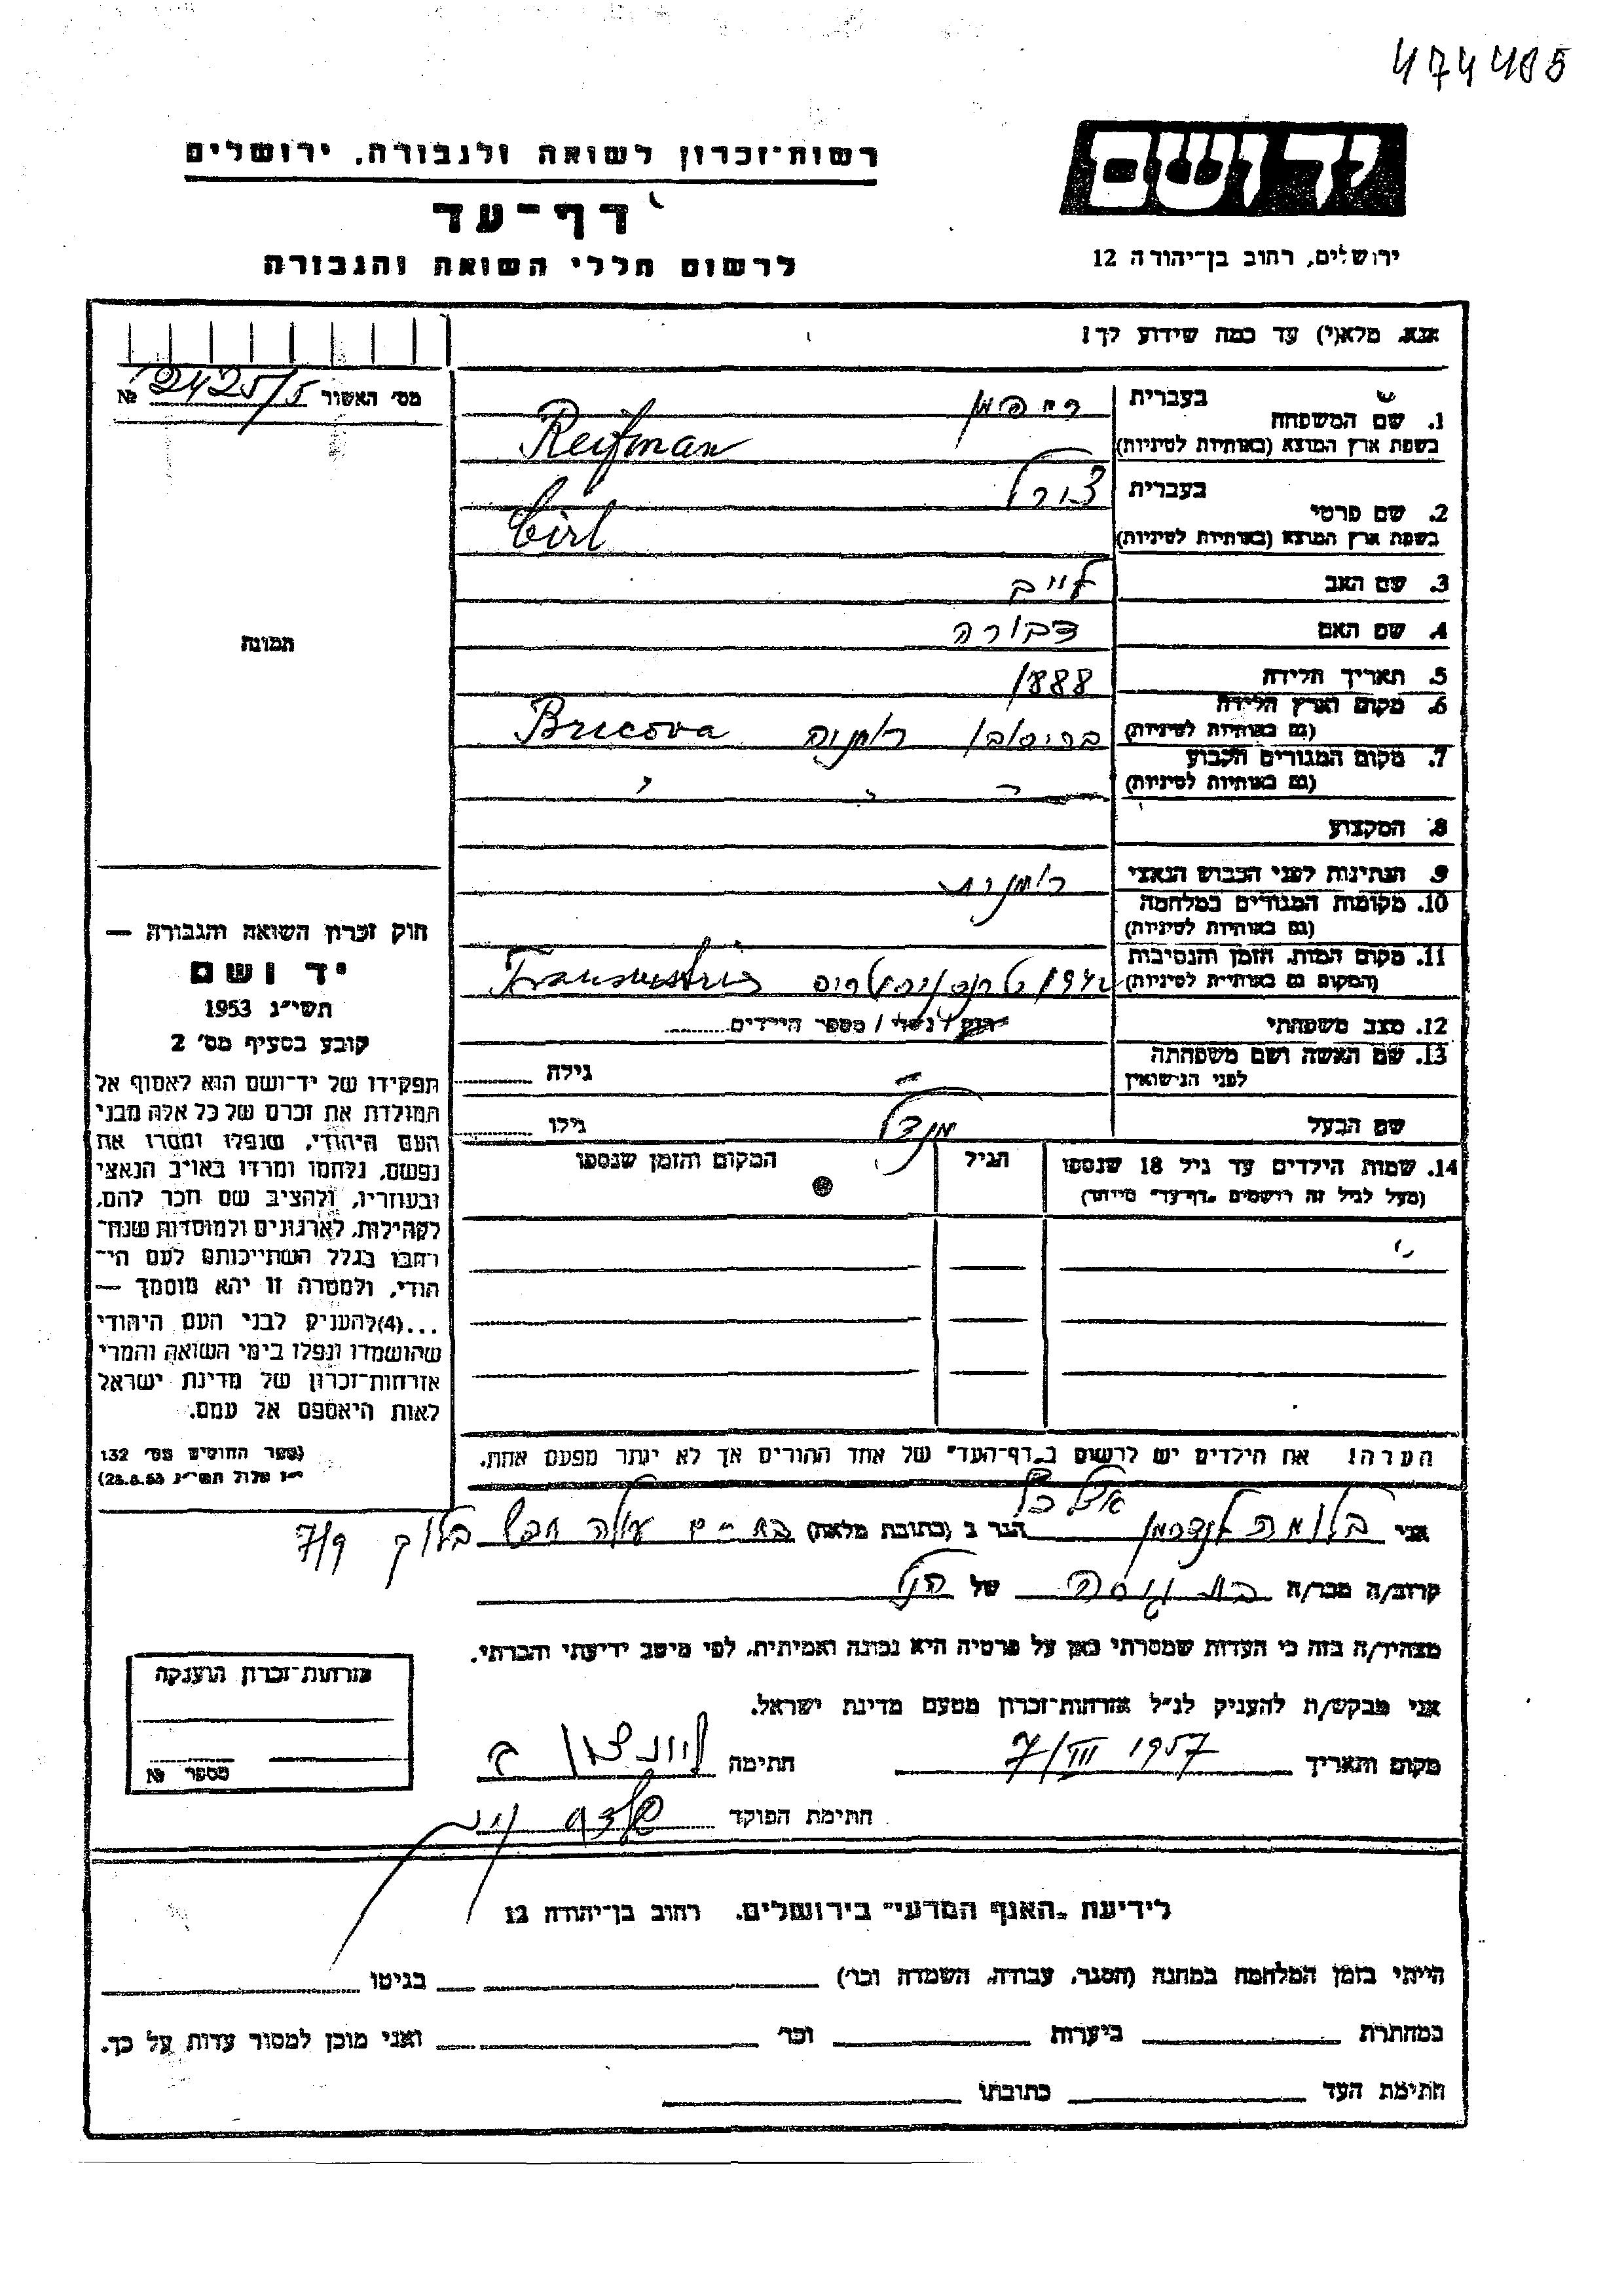 474405
יד ושם
רשות־זכרון לשואה ולגבורה, ירושלים
דף־עד
לרשום חללי השואה והגבורה
ירושלים, רחוב בן־יהודה 12
אנא, מלא(י) עד כמה שידוע לך!
מס' האשור 2425/5 №
1. שם המשפחה
בעברית רייפמן
בשפת ארץ המוצא (באותיות לטיניות) Reifman
2. שם פרטי
בעברית צירל
בשפת ארץ המוצא (באותיות לטיניות) Cirl
3. שם האב לייב
4. שם האם דבורה
5. תאריך הלידה 1888
6. מקום וארץ הלידה
(גם באותיות לטיניות) רומניה Bricova
7. מקום המגורים הקבוע
(גם באותיות לטיניות)
8. המקצוע
9. הנתינות לפני הכבוש הנאצי רומנית
10. מקומות המגורים במלחמה
(גם באותיות לטיניות)
11. מקום המות, הזמן והנסיבות
(המקום גם באותיות לטיניות) 1942 טרנסניסטריה Transnistria
12. מצב משפחתי רווק / נשוי / מספר הילדים
13. שם האשה ושם משפחתה
לפני הנישואין — גילה
שם הבעל מנדל גילו
14. שמות הילדים עד גיל 18 שנספו
(מעל לגיל זה רושמים „דף־עד" מיוחד)
הגיל
המקום והזמן שנספו
הערה! את הילדים יש לרשום ב„דף־העד" של אחד ההורים אך לא יותר מפעם אחת.
תמונה
חוק זכרון השואה והגבורה —
יד ושם
תשי"ג 1953
קובע בסעיף מס' 2
תפקידו של יד־ושם הוא לאסוף אל
המולדת את זכרם של כל אלה מבני
העם היהודי, שנפלו ומסרו את
נפשם, נלחמו ומרדו באויב הנאצי
ובעוזריו, ולהציב שם וזכר להם,
לקהילות, לארגונים ולמוסדות שנח־
רבו בגלל השתייכותם לעם הי־
הודי, ולמטרה זו יהא מוסמך —
...(4)להעניק לבני העם היהודי
שהושמדו ונפלו בימי השואה והמרי
אזרחות־זכרון של מדינת ישראל
לאות היאספם אל עמם.
(ספר החוקים מס' 132
י"ז אלול תשי"ג 28.8.53)
אני בלומה הגר ב (כתובת מלאה) בת-ים בלוק 7/9
קרוב/ה מכר/ה בת גיסה של הנ"ל
מצהיר/ה בזה כי העדות שמסרתי כאן על פרטיה היא נכונה ואמיתית, לפי מיטב ידיעתי והכרתי.
אני מבקש/ת להעניק לנ"ל אזרחות־זכרון מטעם מדינת ישראל.
מקום ותאריך 7/III 1957 חתימה
חתימת הפוקד
אזרחות־זכרון הוענקה
מספר №
לידיעת „האגף המדעי" בירושלים, רחוב בן־יהודה 12
הייתי בזמן המלחמה במחנה (הסגר, עבודה, השמדה וכו') בגיטו
במחתרת ביערות וכו' ואני מוכן למסור עדות על כך.
חתימת העד כתובתו